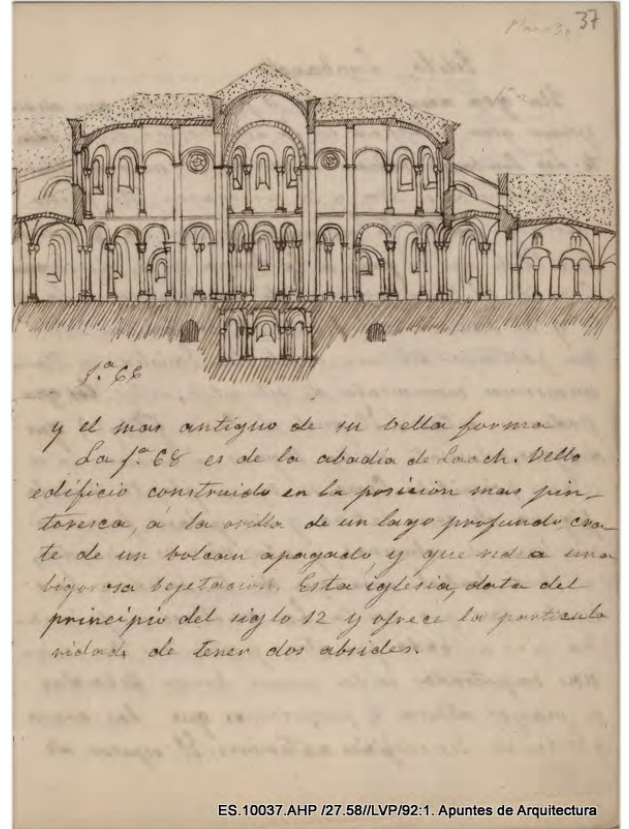 37
f.ª 66
y el mas antiguo de su bella forma
La f.ª 68 es de la abadia de Laach. Bello
edificio construido en la posicion mas pin-
toresca, á la orilla de un lago profundo, cra-
te de un bolcan apagado, y que á una
bigorosa bejetacion. Esta iglesia, data del
principio del siglo 12 y ofrece la particula
ridad de tener dos absides.
ES.10037.AHP /27.58//LVP/92:1. Apuntes de Arquitectura